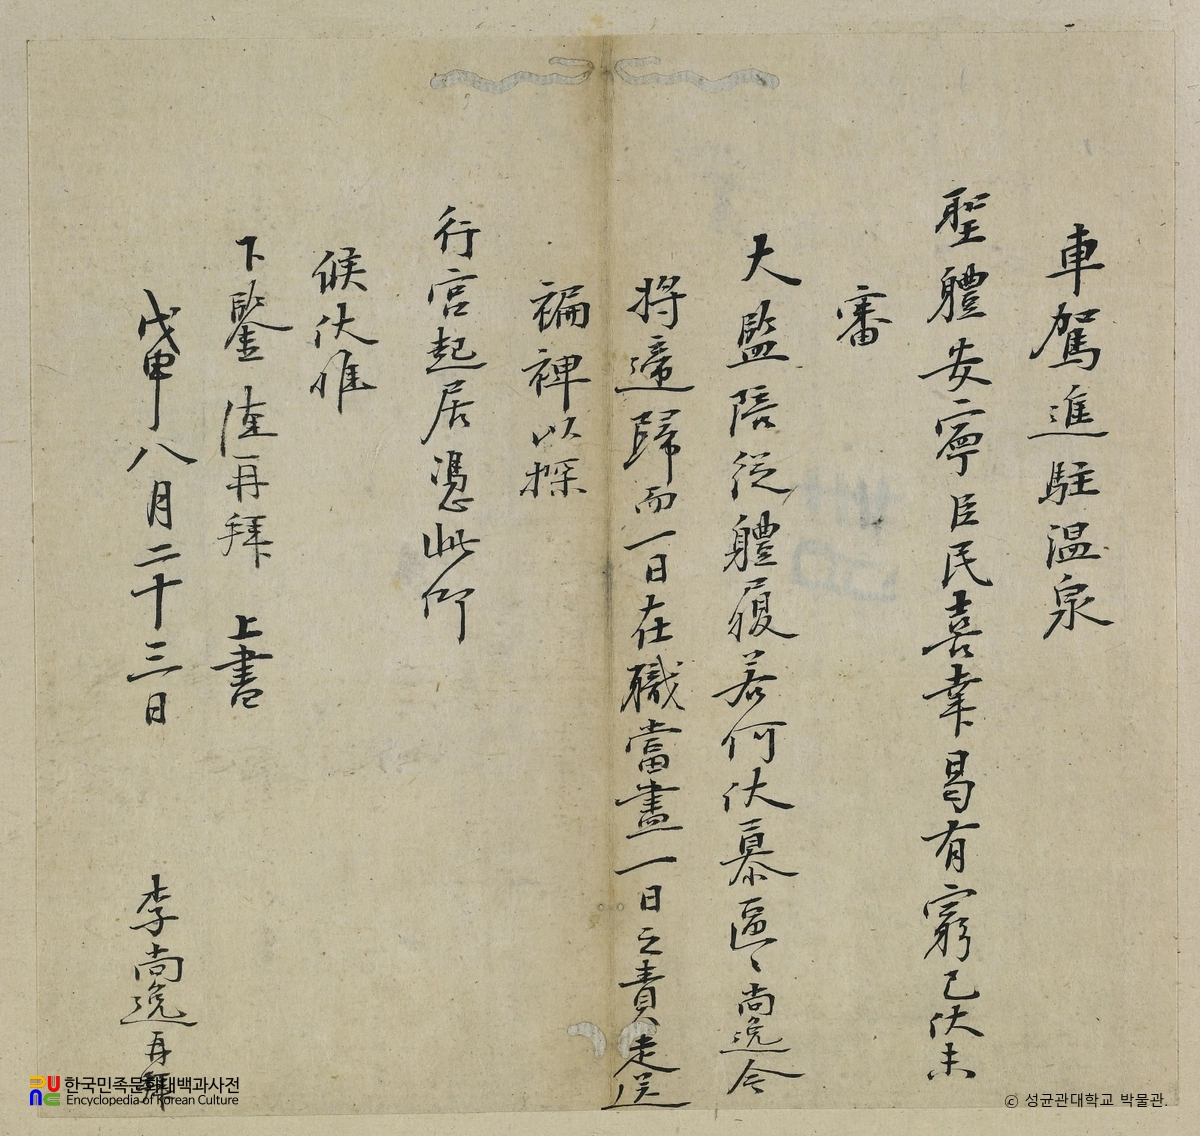 車駕進駐温泉
聖體安寧臣民喜幸曷有窮已伏未
審
大監陪從體履若何伏慕區〻尚逸今
將遞歸而一日在職當盡一日之責走送
褊裨以探
行宮起居憑此仰
候伏惟
下鑒 再拜 上書
戊申八月二十三日
李尚逸再拜
한국민족문화대백과사전
Encyclopedia of Korean Culture
ⓒ 성균관대학교 박물관.